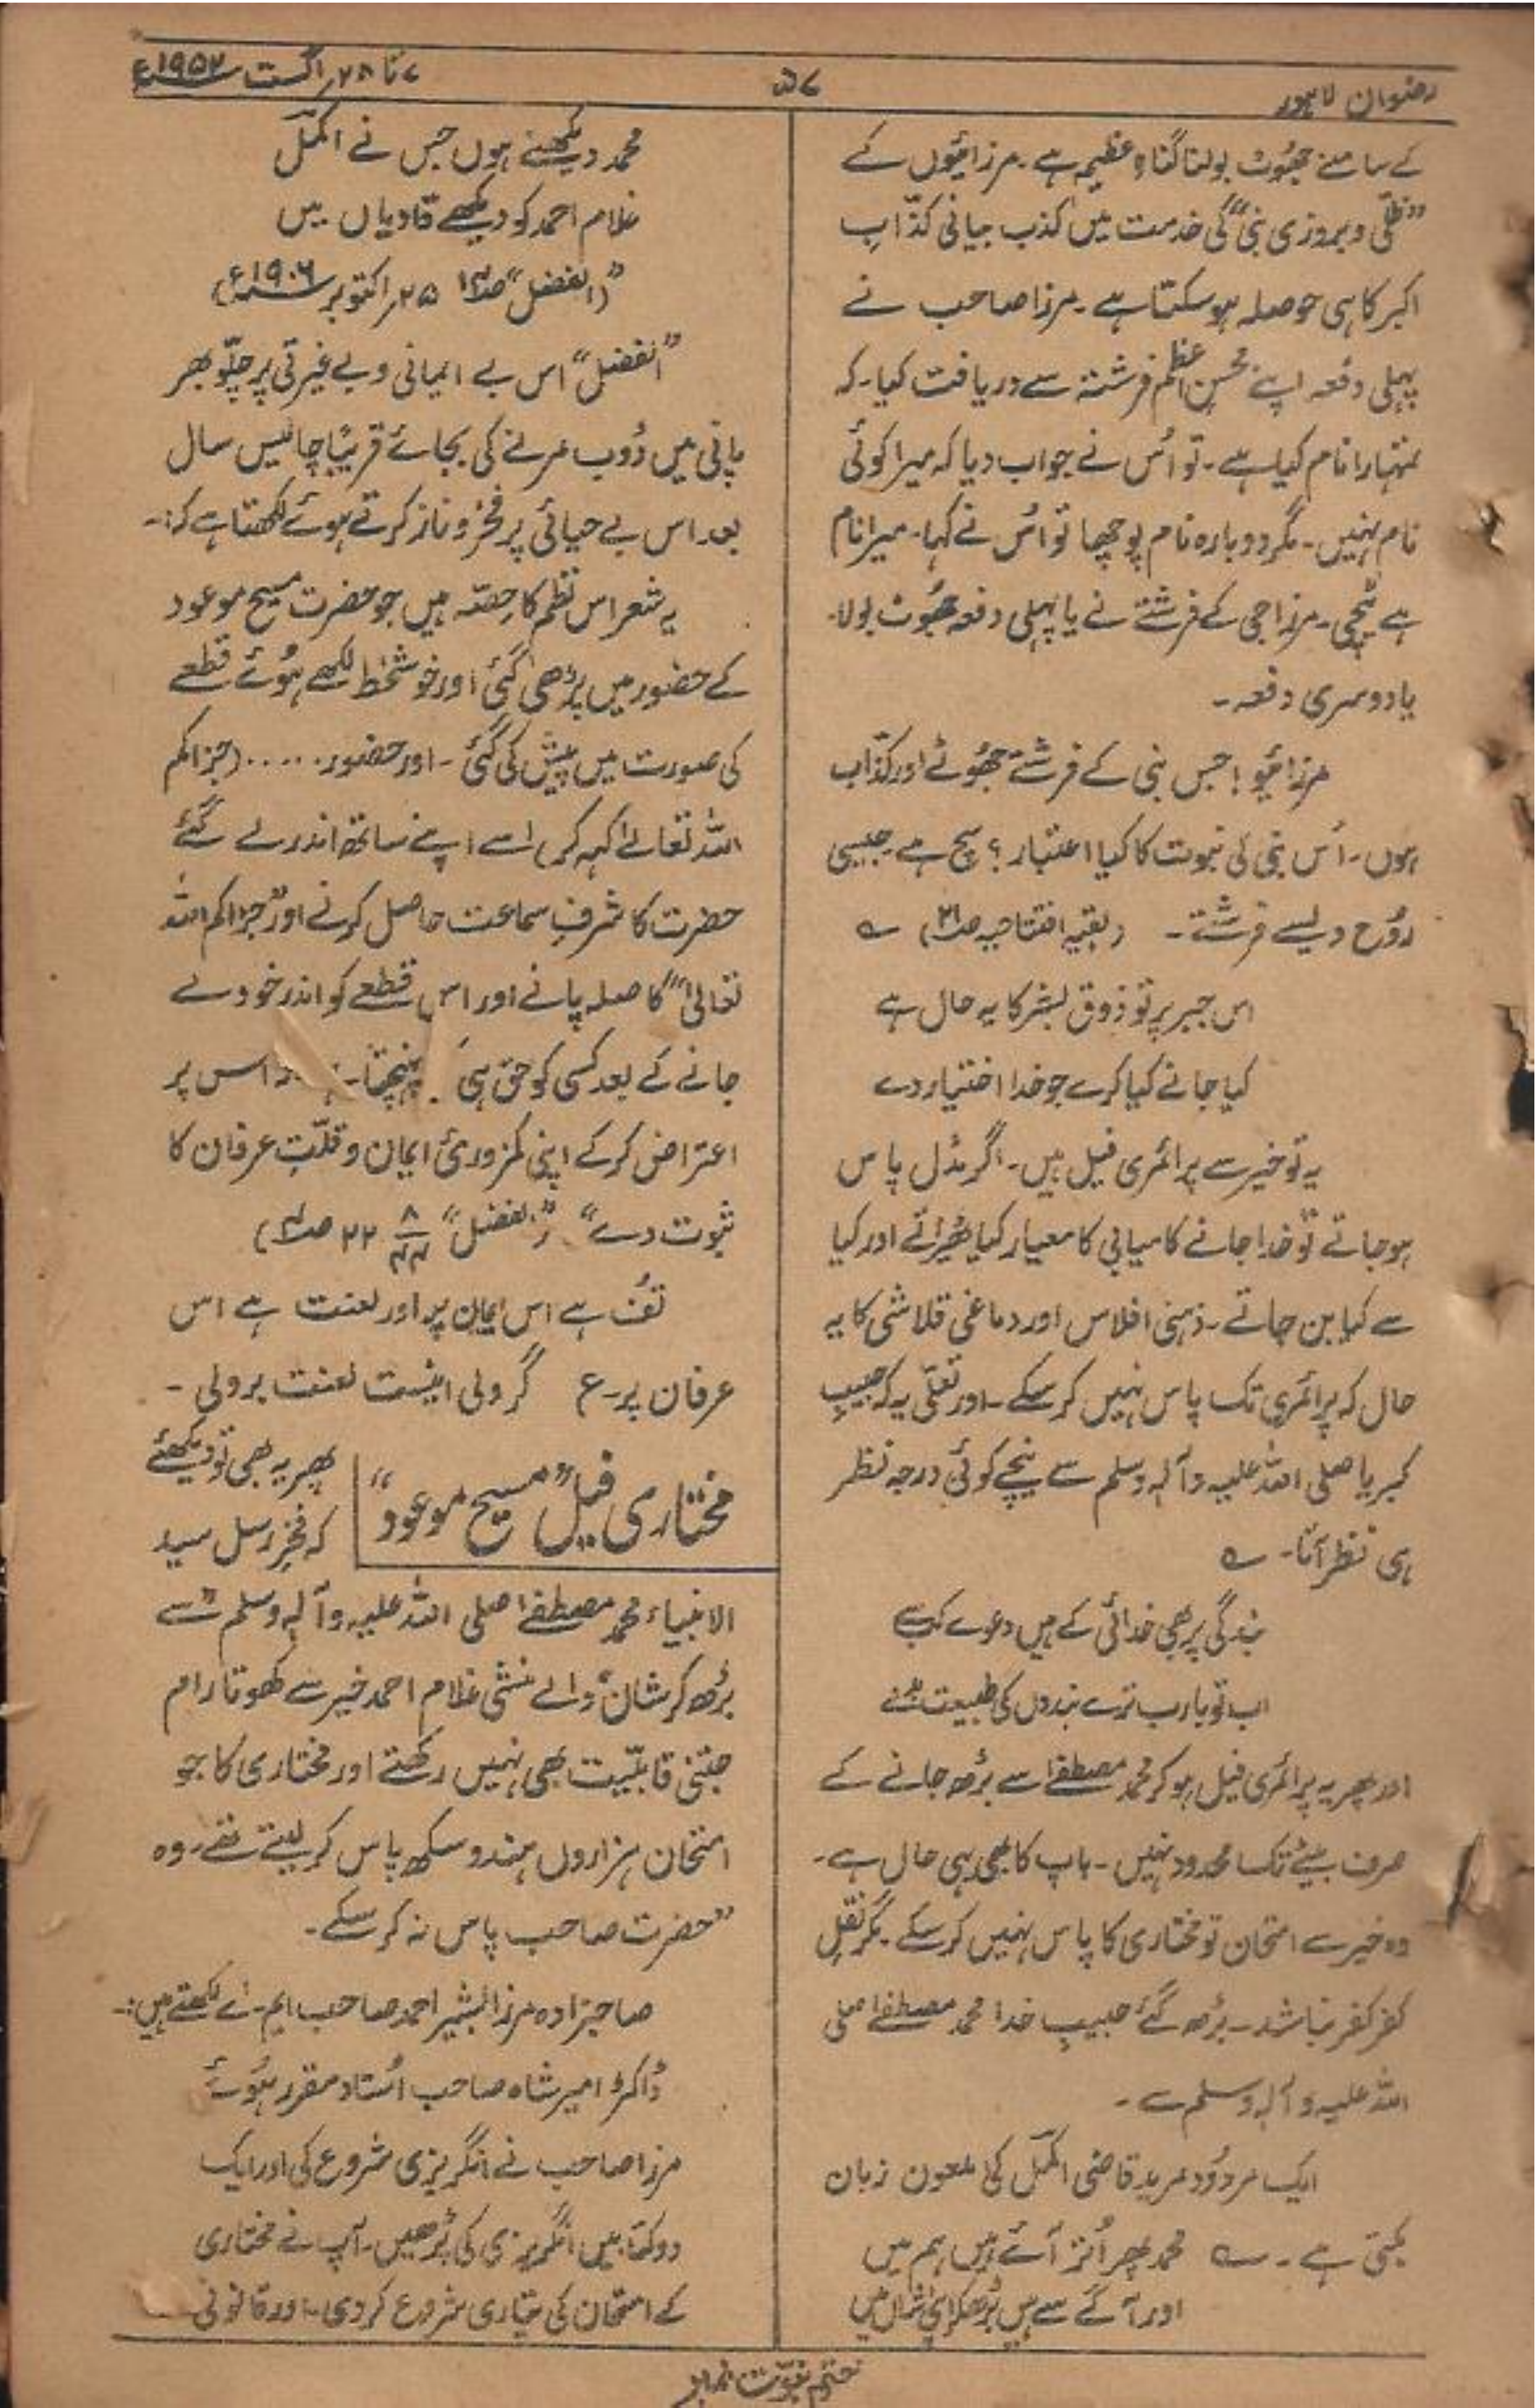 رضوان لاہور
۵۷
۷ تا ۲۸ اگست ۱۹۵۲ء
کے سامنے جھوٹ بولنا گناہِ عظیم ہے۔ مرزائیوں کے
”ظلّی و بروزی نبی“ کی خدمت میں کذب بیانی کذّابِ
اکبر کا ہی حوصلہ ہو سکتا ہے۔ مرزا صاحب نے
پہلی دفعہ اپنے محسنِ اعظم فرشتہ سے دریافت کیا۔ کہ
تمہارا نام کیا ہے۔ تو اُس نے جواب دیا کہ میرا کوئی
نام نہیں۔ مگر دوبارہ نام پوچھا تو اُس نے کہا۔ میرا نام
ہے ٹیچی۔ مرزا جی کے فرشتے نے یا پہلی دفعہ جھوٹ بولا۔
یا دوسری دفعہ۔
مرزائیو! جس نبی کے فرشتے جھوٹے اور کذّاب
ہوں۔ اُس نبی کی نبوت کا کیا اعتبار؟ سچ ہے۔ جیسی
رُوح ویسے فرشتے۔ (بقیہ افتتاحیہ صفحہ ۲۱) ؎
اس جبر پر تو ذوق بشر کا یہ حال ہے
کیا جانے کیا کرے جو خدا اختیار دے
یہ تو خیر سے پرائمری فیل ہیں۔ اگر مڈل پاس
ہو جاتے تو خدا جانے کامیابی کا معیار کیا ٹھیراتے اور کیا
سے کیا بن جاتے۔ ذہنی افلاس اور دماغی قلاشی کا یہ
حال کہ پرائمری تک پاس نہیں کر سکے۔ اور تعلّی یہ کہ حبیبِ
کبریا صلی اللہ علیہ وآلہٖ وسلم سے نیچے کوئی درجہ نظر
ہی نظر آتا۔ ؎
بندگی پر بھی خدائی کے ہیں دعوے کیسے
اب تو یارب ترے بندوں کی طبیعت
اور پھر یہ پرائمری فیل ہو کر محمد مصطفےٰ سے بڑھ جانے کے
صرف بیٹے تک محدود نہیں۔ باپ کا بھی یہی حال ہے۔
وہ خیر سے امتحان تو مختاری کا پاس نہیں کر سکے۔ مگر نقلِ
کفر کفر نباشد۔ بڑھ گئے حبیبِ خدا محمد مصطفےٰ صلی
اللہ علیہ وآلہٖ وسلم سے۔
ایک مردُود مرید قاضی اکمل کی ملعون زبان
بکتی ہے۔ ؎ محمد پھر اُتر آئے ہیں ہم میں
اور آگے سے ہیں بڑھ کر اپنی شاں میں
محمد دیکھنے ہوں جس نے اکمل
غلام احمد کو دیکھے قادیاں میں
(”الفضل“ صفحہ ۱۴ ۲۵ اکتوبر ۱۹۰۶ء)
”الفضل“ اس بے ایمانی و بے غیرتی پر چلّو بھر
پانی میں ڈوب مرنے کی بجائے قریباً چالیس سال
بعد اس بے حیائی پر فخر و ناز کرتے ہوئے لکھتا ہے کہ:۔
یہ شعر اس نظم کا حصّہ ہیں جو حضرت مسیح موعود
کے حضور میں پڑھی گئی اور خوشخط لکھے ہوئے قطعے
کی صورت میں پیش کی گئی۔ اور حضور..... (جزاکم
اللہ تعالےٰ کہہ کر) اسے اپنے ساتھ اندر لے گئے
حضرت کا شرفِ سماعت حاصل کرنے اور ”جزاکم اللہ
تعالیٰ“ کا صلہ پانے اور اس قطعے کو اندر خود لے
جانے کے بعد کسی کو حق ہی پہنچتا۔ اس پر
اعتراض کر کے اپنی کمزوریٔ ایمان و قلّتِ عرفان کا
ثبوت دے“ (”الفضل“ ۲۲ ۸/۴۴ صفحہ)
تُف ہے اس ایمان پر اور لعنت ہے اس
عرفان پر۔ ع گر ولی اینست لعنت بر ولی۔
مختاری فیل ”مسیح موعود“
پھر یہ بھی تو دیکھئے
کہ فخرِ رسل سید
الانبیاء محمد مصطفےٰ صلی اللہ علیہ وآلہٖ وسلم ”سے
بڑھ کر شان“ والے منشی غلام احمد خیر سے کھوتا رام
جتنی قابلیّت بھی نہیں رکھتے اور مختاری کا جو
امتحان ہزاروں ہندو سکھ پاس کر لیتے تھے۔ وہ
”حضرت صاحب پاس نہ کر سکے۔
صاحبزادہ مرزا بشیر احمد صاحب ایم۔ اے لکھتے ہیں:۔
ڈاکٹر امیر شاہ صاحب اُستاد مقرر ہُوئے
مرزا صاحب نے انگریزی شروع کی اور ایک
دو کتابیں انگریزی کی پڑھیں۔ آپ نے مختاری
کے امتحان کی تیاری شروع کر دی۔ اور قانونی
ختم نبوّت نمبر